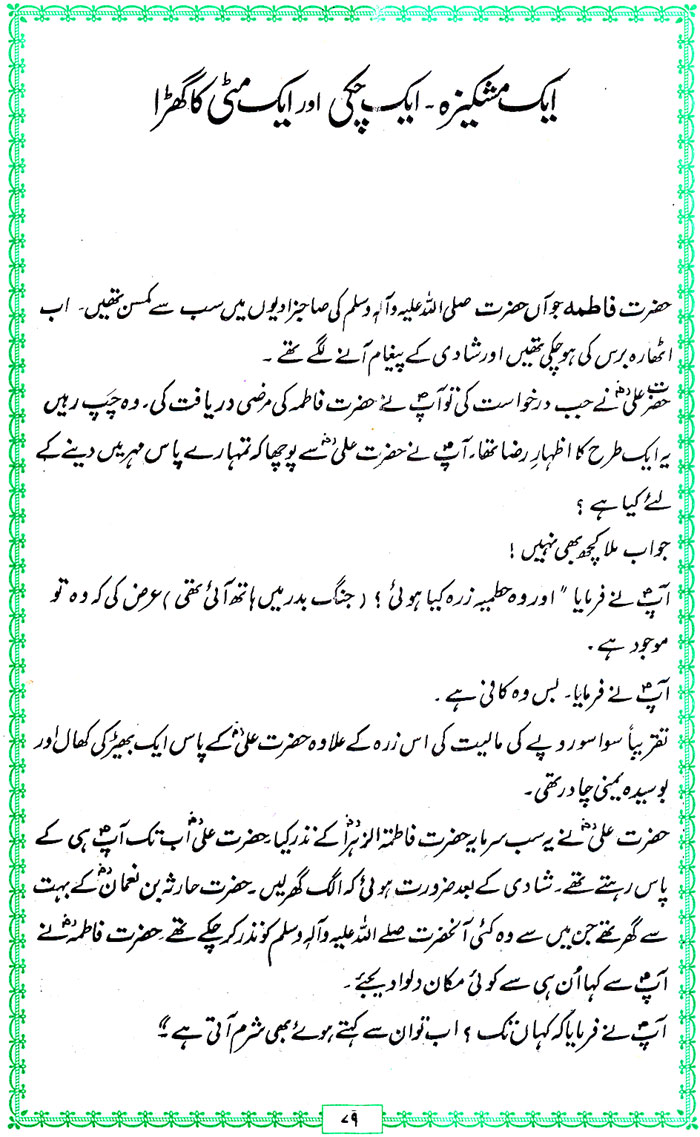 ایک مشکیزہ ۔ ایک چکی اور ایک مٹی کا گھڑا
حضرت فاطمہ جو آں حضرت صلی اللہ علیہ وآلہٖ وسلم کی صاحبزادیوں میں سب سے کمسن تھیں۔ اب
اٹھارہ برس کی ہو چکی تھیں اور شادی کے پیغام آنے لگے تھے ۔
حضرت علیؓ نے جب درخواست کی تو آپؐ نے حضرت فاطمہ کی مرضی دریافت کی۔ وہ چپ رہیں
یہ ایک طرح کا اظہارِ رضا تھا۔ آپؐ نے حضرت علیؓ سے پوچھا کہ تمہارے پاس مہر میں دینے کے
لئے کیا ہے ؟
جواب ملا کچھ بھی نہیں !
آپؐ نے فرمایا " اور وہ حطمیہ زرہ کیا ہوئی ؟ ( جنگ بدر میں ہاتھ آئی تھی ) عرض کی کہ وہ تو
موجود ہے ۔
آپؐ نے فرمایا۔ بس وہ کافی ہے ۔
تقریباً سوا سو روپے کی مالیت کی اس زرہ کے علاوہ حضرت علیؓ کے پاس ایک بھیڑ کی کھال اور
بوسیدہ یمنی چادر تھی۔
حضرت علیؓ نے یہ سب سرمایہ حضرت فاطمۃ الزہراؓ کے نذر کیا۔ حضرت علیؓ اب تک آپؐ ہی کے
پاس رہتے تھے۔ شادی کے بعد ضرورت ہوئی کہ الگ گھر لیں۔ حضرت حارثہ بن نعمانؓ کے بہت
سے گھر تھے جن میں سے وہ کئی آنحضرت صلے اللہ علیہ وآلہٖ وسلم کو نذر کر چکے تھے۔ حضرت فاطمہؓ نے
آپؐ سے کہا اُن ہی سے کوئی مکان دلوا دیجئے ۔
آپؐ نے فرمایا کہ کہاں تک ؟ اب تو ان سے کہتے ہوئے بھی شرم آتی ہے ۔"
۷۹